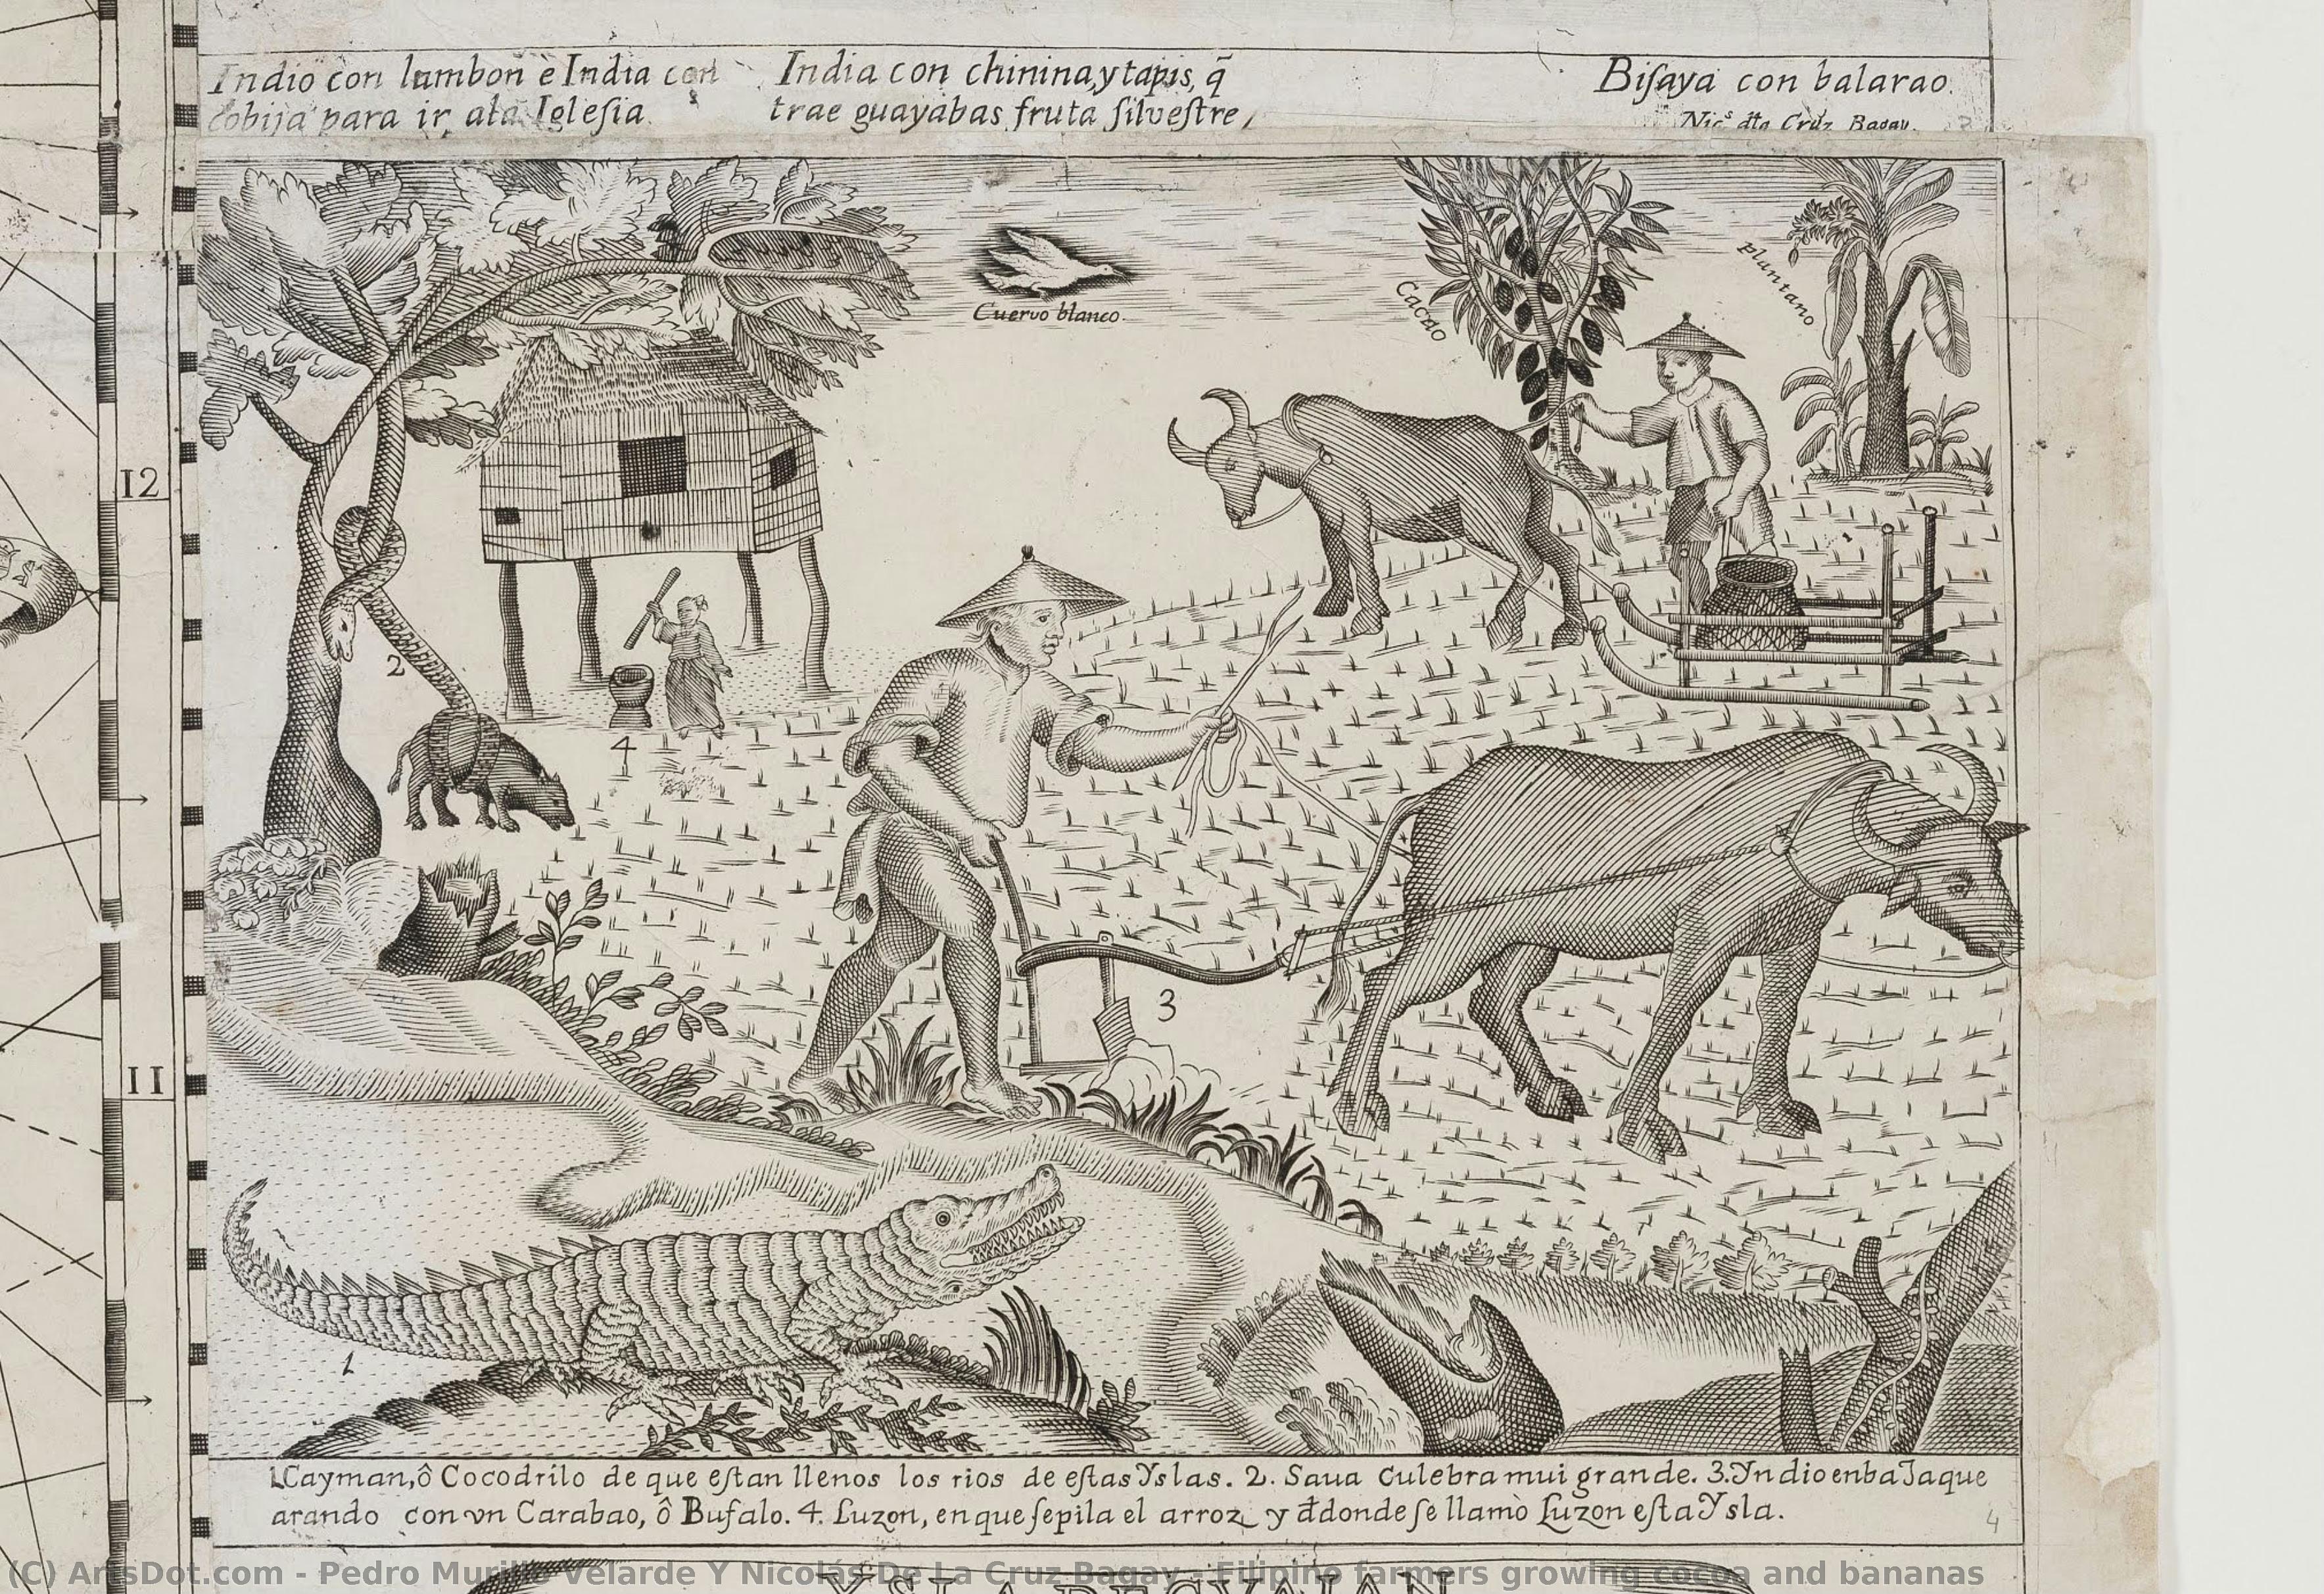 Indio con lambon è India con
cobija para ir, a la Iglesia.
India con chinina, y tapis, q̃
trae guayabas fruta silvestre,
Bisaya con balarao.
Nic.ˢ dla Cruz Bagay.
Cuervo blanco.
Cacao
plantano
12
2
4
3
11
1
1. Cayman, ô Cocodrilo de que eſtan llenos los rios de eſtas Yslas. 2. Saua Culebra mui grande. 3. Yndio en baJaque
arando con vn Carabao, ô Bufalo. 4. Luzon, en que ſe pila el arroz, y đ donde ſe llamò Luzon eſta Ysla.
4
YSLA DE GVAJAN
(C) ArtsDot.com - Pedro Murillo Velarde Y Nicolás De La Cruz Bagay - Filipino farmers growing cocoa and bananas